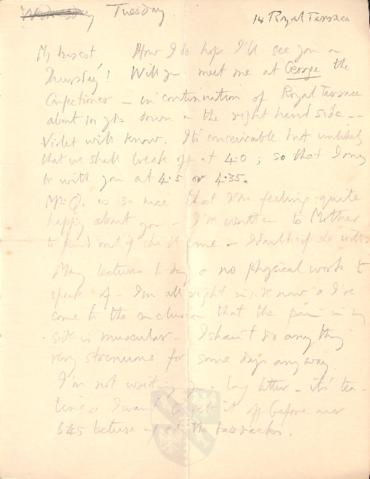 Wednesday Tuesday
14 Royal Terrace
My dearest How I do hope I'll see you on
Thursday! Will you meet me at George the
Confectioner – in continuation of Royal Terrace
about 100 yds down on the right hand side –
Violet will know. It's conceivable but unlikely
that we shall break off at 4.0; so that I may
be with you at 4.5 or 4.35.
is so nice that I'm feeling quite
happy about you – I've written to Mother
to find out if she'll come – I doubt if she will
Many lectures today & no physical work to
speak of – I'm all right inside now & I've
come to the conclusion that the pain in my
side is muscular – I shan't do anything
very strenuous for some days anyway.
I'm not writing you a long letter – it's tea-
time & I want to get it off before our
5.45 lecture at the barracks.